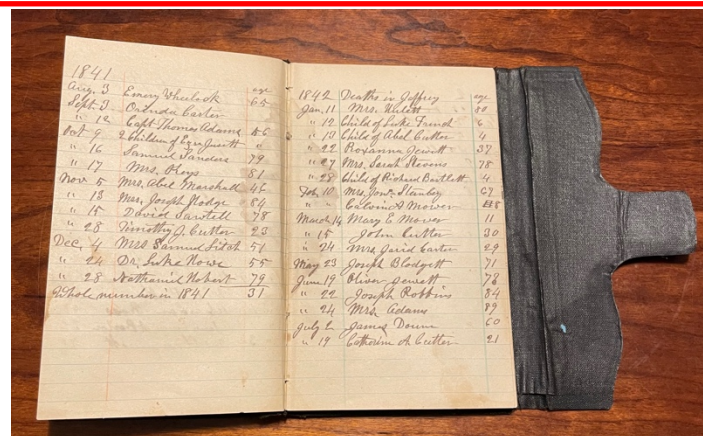 1841
age
Aug. 3 Emery Wheelock 65
Sept 3. Orinda Carter
" 12 Capt Thomas Adams 56
Oct 9 2 Children of Ezra Jewett "
" 16 Samuel Sanders 79
" 17 Mrs. 81
Nov 5 Mrs. Abel Marshall 46
" 13 Mrs. Joseph Hodge 84
" 15 David Sawtell 78
" 28 Timothy J. Cutter 23
Dec. 4 Mrs Samuel Fitch 51
" 24 Dr. Luke Howe 55
" 28 Nathaniel Hobart 79
Whole number in 1841 31
1842 Deaths in Jaffrey age
Jan. 11 Mrs.
" 12 Child of Luke French 6
" 13 Child of Abel Cutter 4
" 22 Roxanna Jewett 37
" 27 Mrs. Sarah Stevens 78
" 28 Child of Richard Bartlett 4
Feb. 10 Mrs. Jona. Stanley 67
" " Calvin Mower
March 14 Mary E Mower 11
" 15 John Cutter 30
" 24 Mrs David Carter 29
May 23 Joseph Blodgett 71
June 19 Oliver Jewett
" 22 Joseph Robbins 84
" 24 Mrs. Adams 89
July 2 James 60
" 19 Catherine A Cutter 21